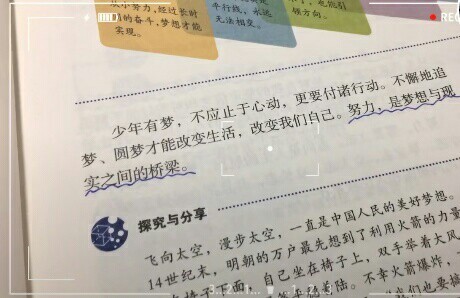 从小努力,经过长时
间的奋斗,梦想才能
实现。
平行线,永远
无法相交。
领方向。
少年有梦，不应止于心动，更要付诸行动。不懈地追
梦、圆梦才能改变生活，改变我们自己。努力，是梦想与现
实之间的桥梁。
探究与分享
飞向太空，漫步太空，一直是中国人民的美好梦想。
14世纪末，明朝的万户最先想到了利用火箭的力量
自己坐在椅子上，双手举着大风
不幸火箭爆炸，
REC